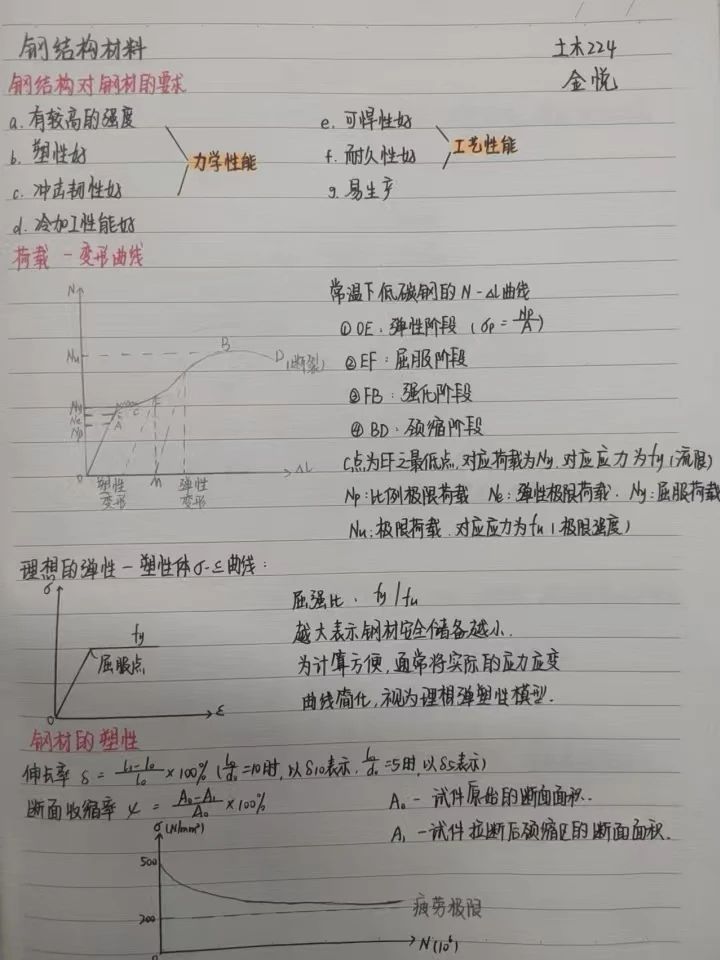 钢结构材料 土木224
钢结构对钢材的要求 金悦
a. 有较高的强度 e. 可焊性好
b. 塑性好 力学性能 f. 耐久性好 工艺性能
c. 冲击韧性好 g. 易生产
d. 冷加工性能好
荷载-变形曲线
N
常温下低碳钢的N-ΔL曲线
① OE: 弹性阶段 (σp = Np/A)
Nu B D (断裂) ② EF: 屈服阶段
③ FB: 强化阶段
④ BD: 颈缩阶段
Ny
Ne E C F
Np A
C点为EF之最低点, 对应荷载为Ny, 对应应力为fy (流限)
0 塑性变形 弹性变形 ΔL
Np: 比例极限荷载 Ne: 弹性极限荷载. Ny: 屈服荷载
Nu: 极限荷载. 对应应力为fu (极限强度)
理想的弹性-塑性体σ-ε曲线:
σ
屈强比. fy/fu
fy
越大表示钢材安全储备越小.
屈服点
为计算方便, 通常将实际的应力应变
曲线简化, 视为理想弹塑性模型.
0 ε
钢材的塑性
伸长率 δ = (l₁-l₀)/l₀ ×100% (l₀/d₀=10时, 以δ10表示, l₀/d₀=5时, 以δ5表示)
断面收缩率 ψ = (A₀-A₁)/A₀ ×100% A₀ - 试件原始的断面面积.
A₁ - 试件拉断后颈缩区的断面面积.
σ (N/mm²)
500
疲劳极限
200
0 N(10⁶)